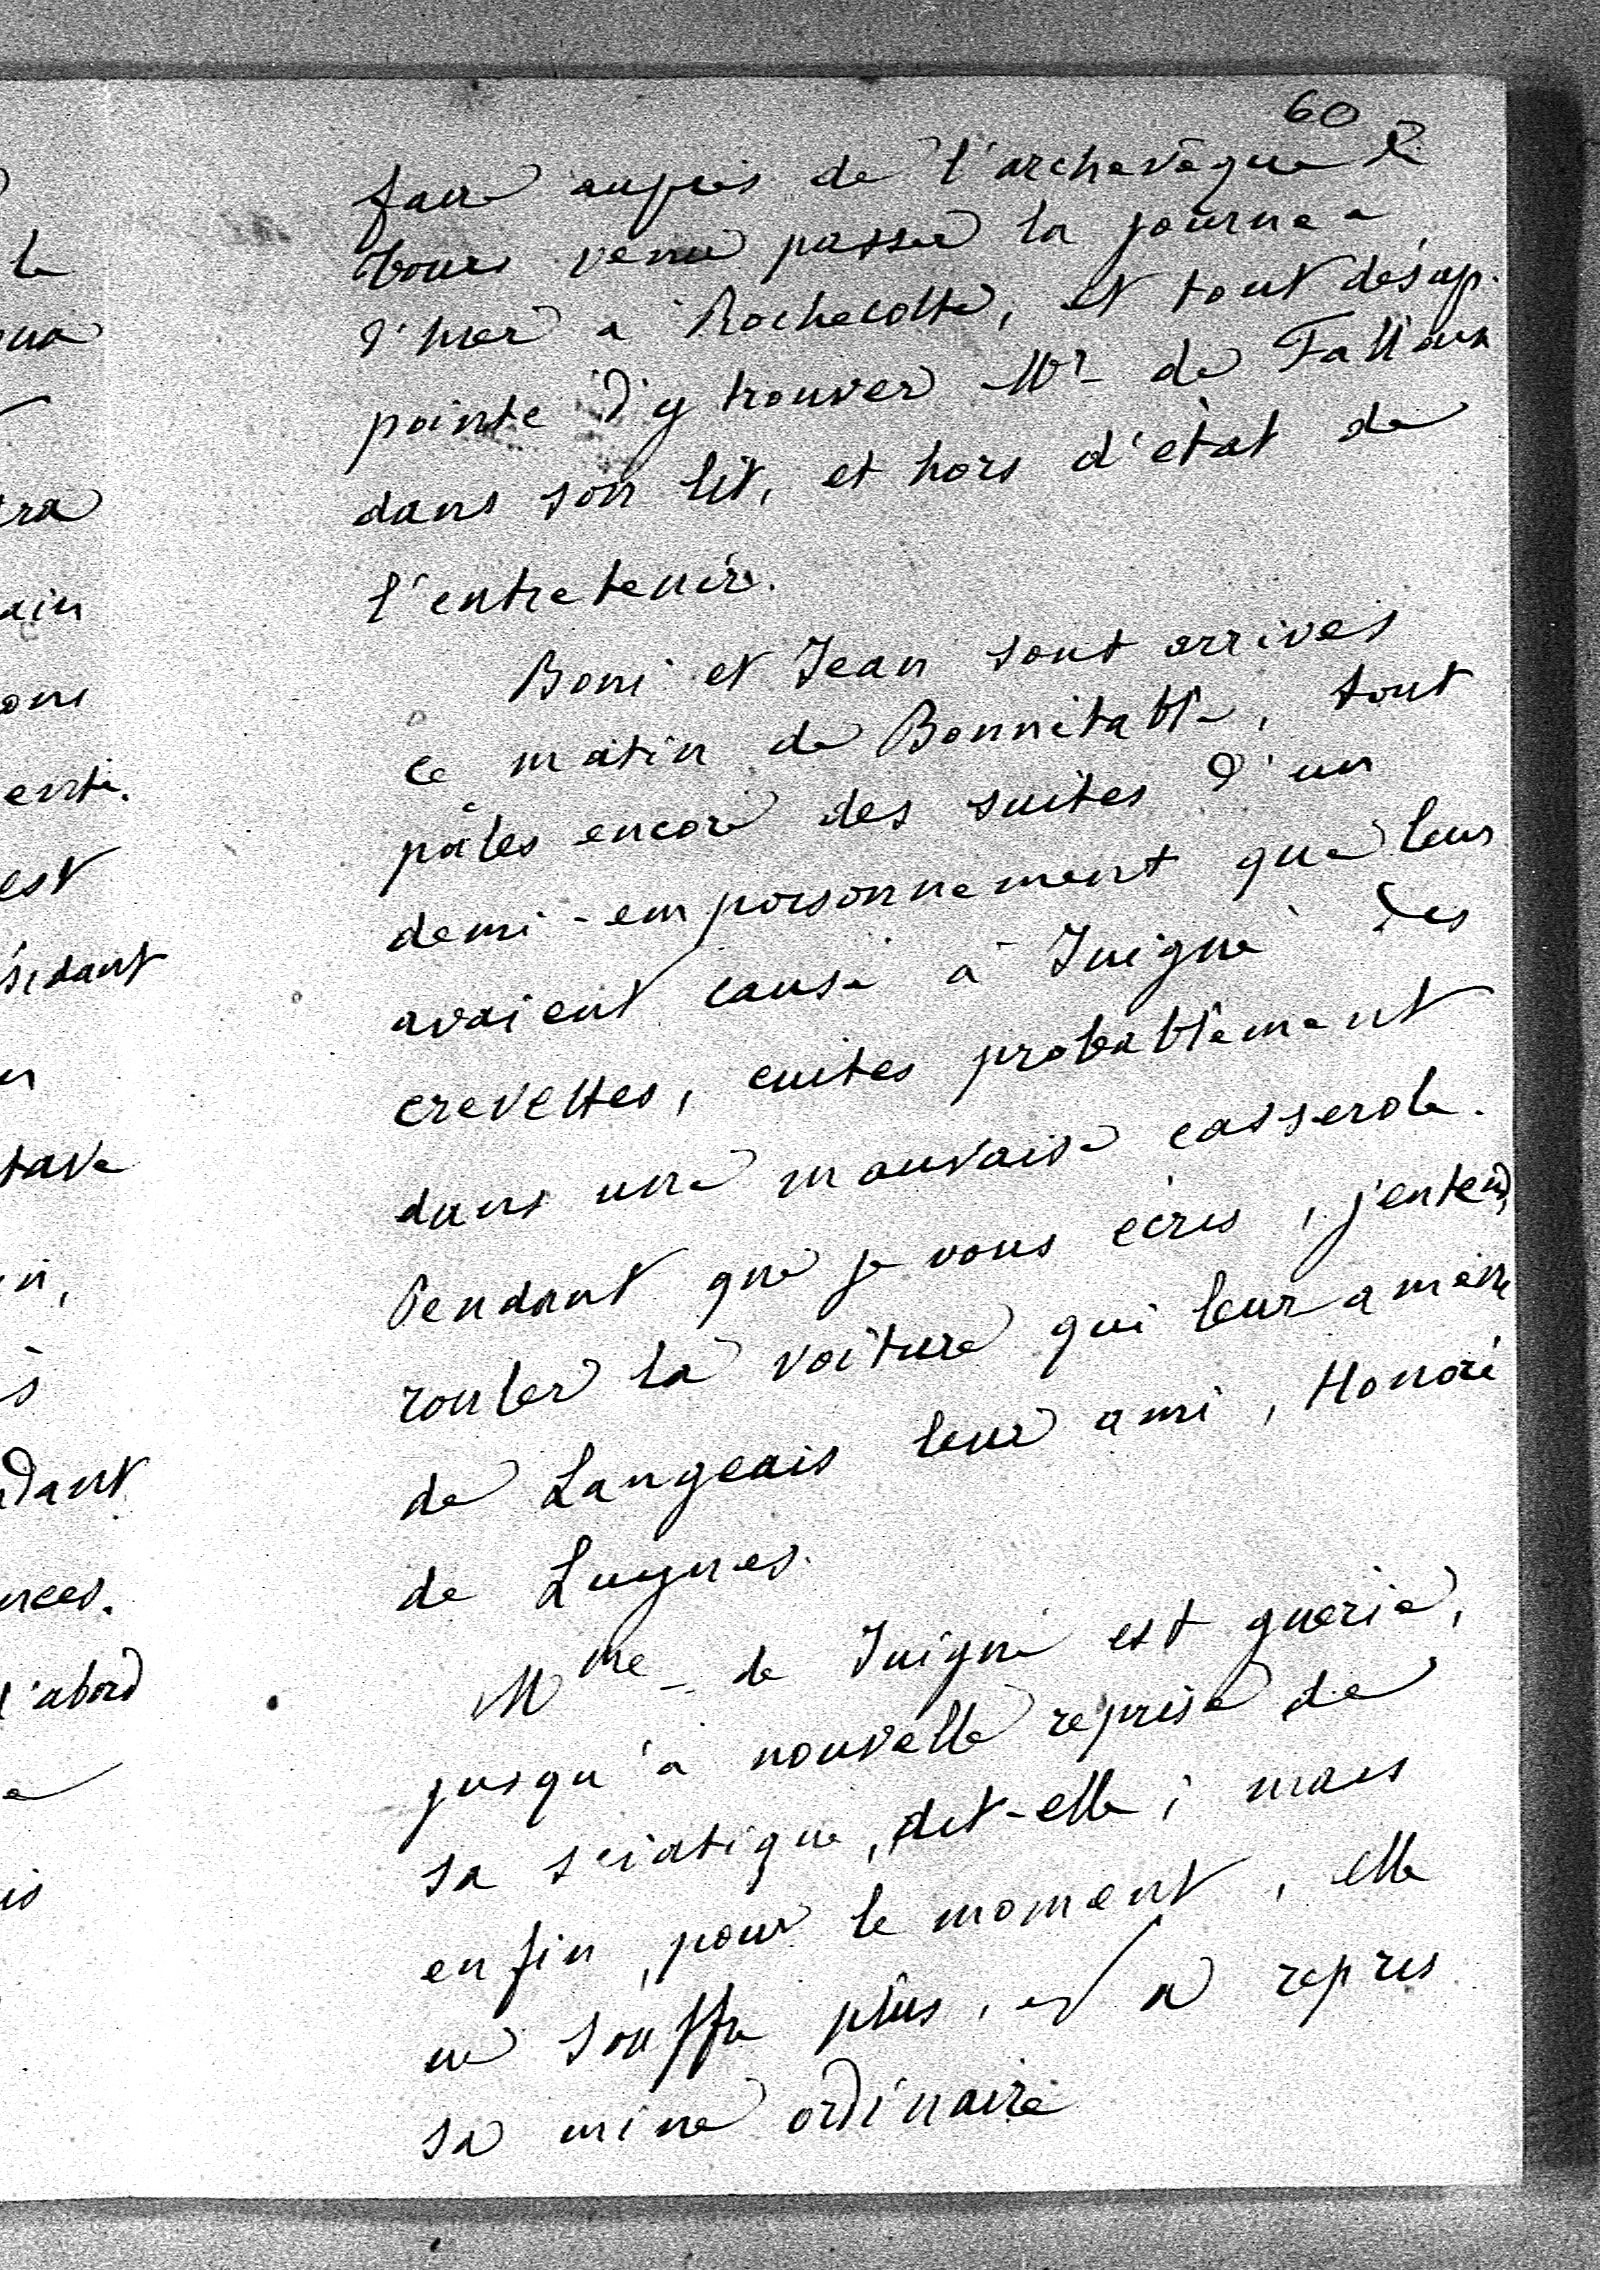 60
faire auprès de l'archevêque de
Tours venu passer la journée
d'hier à Rochecotte, et tout désap-
pointé d'y trouver Mr de Falloux
dans son lit, et hors d'état de
l'entretenir.
Boni et Jean sont arrivés
ce matin de Bonnétable, tout
pâles encore des suites d'un
demi-empoisonnement que leur
avaient causé à Juigné des
crevettes, cuites probablement
dans une mauvaise casserole.
Pendant que je vous écris, j'entends
rouler la voiture qui leur amène
de Langeais leur ami, Honoré
de Luynes.
Mme de Juigné est guérie,
jusqu'à nouvelle reprise de
sa sciatique, dit-elle; mais
enfin, pour le moment, elle
ne souffre plus, et a repris
sa mine ordinaire
le
ain
ons
est
sidant
tave
dant
nces.
d'abord